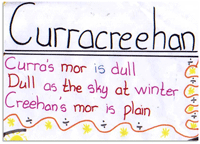 Curracreehan
Curra's mor is dull
Dull as the sky at winter
Creehan's mor is plain